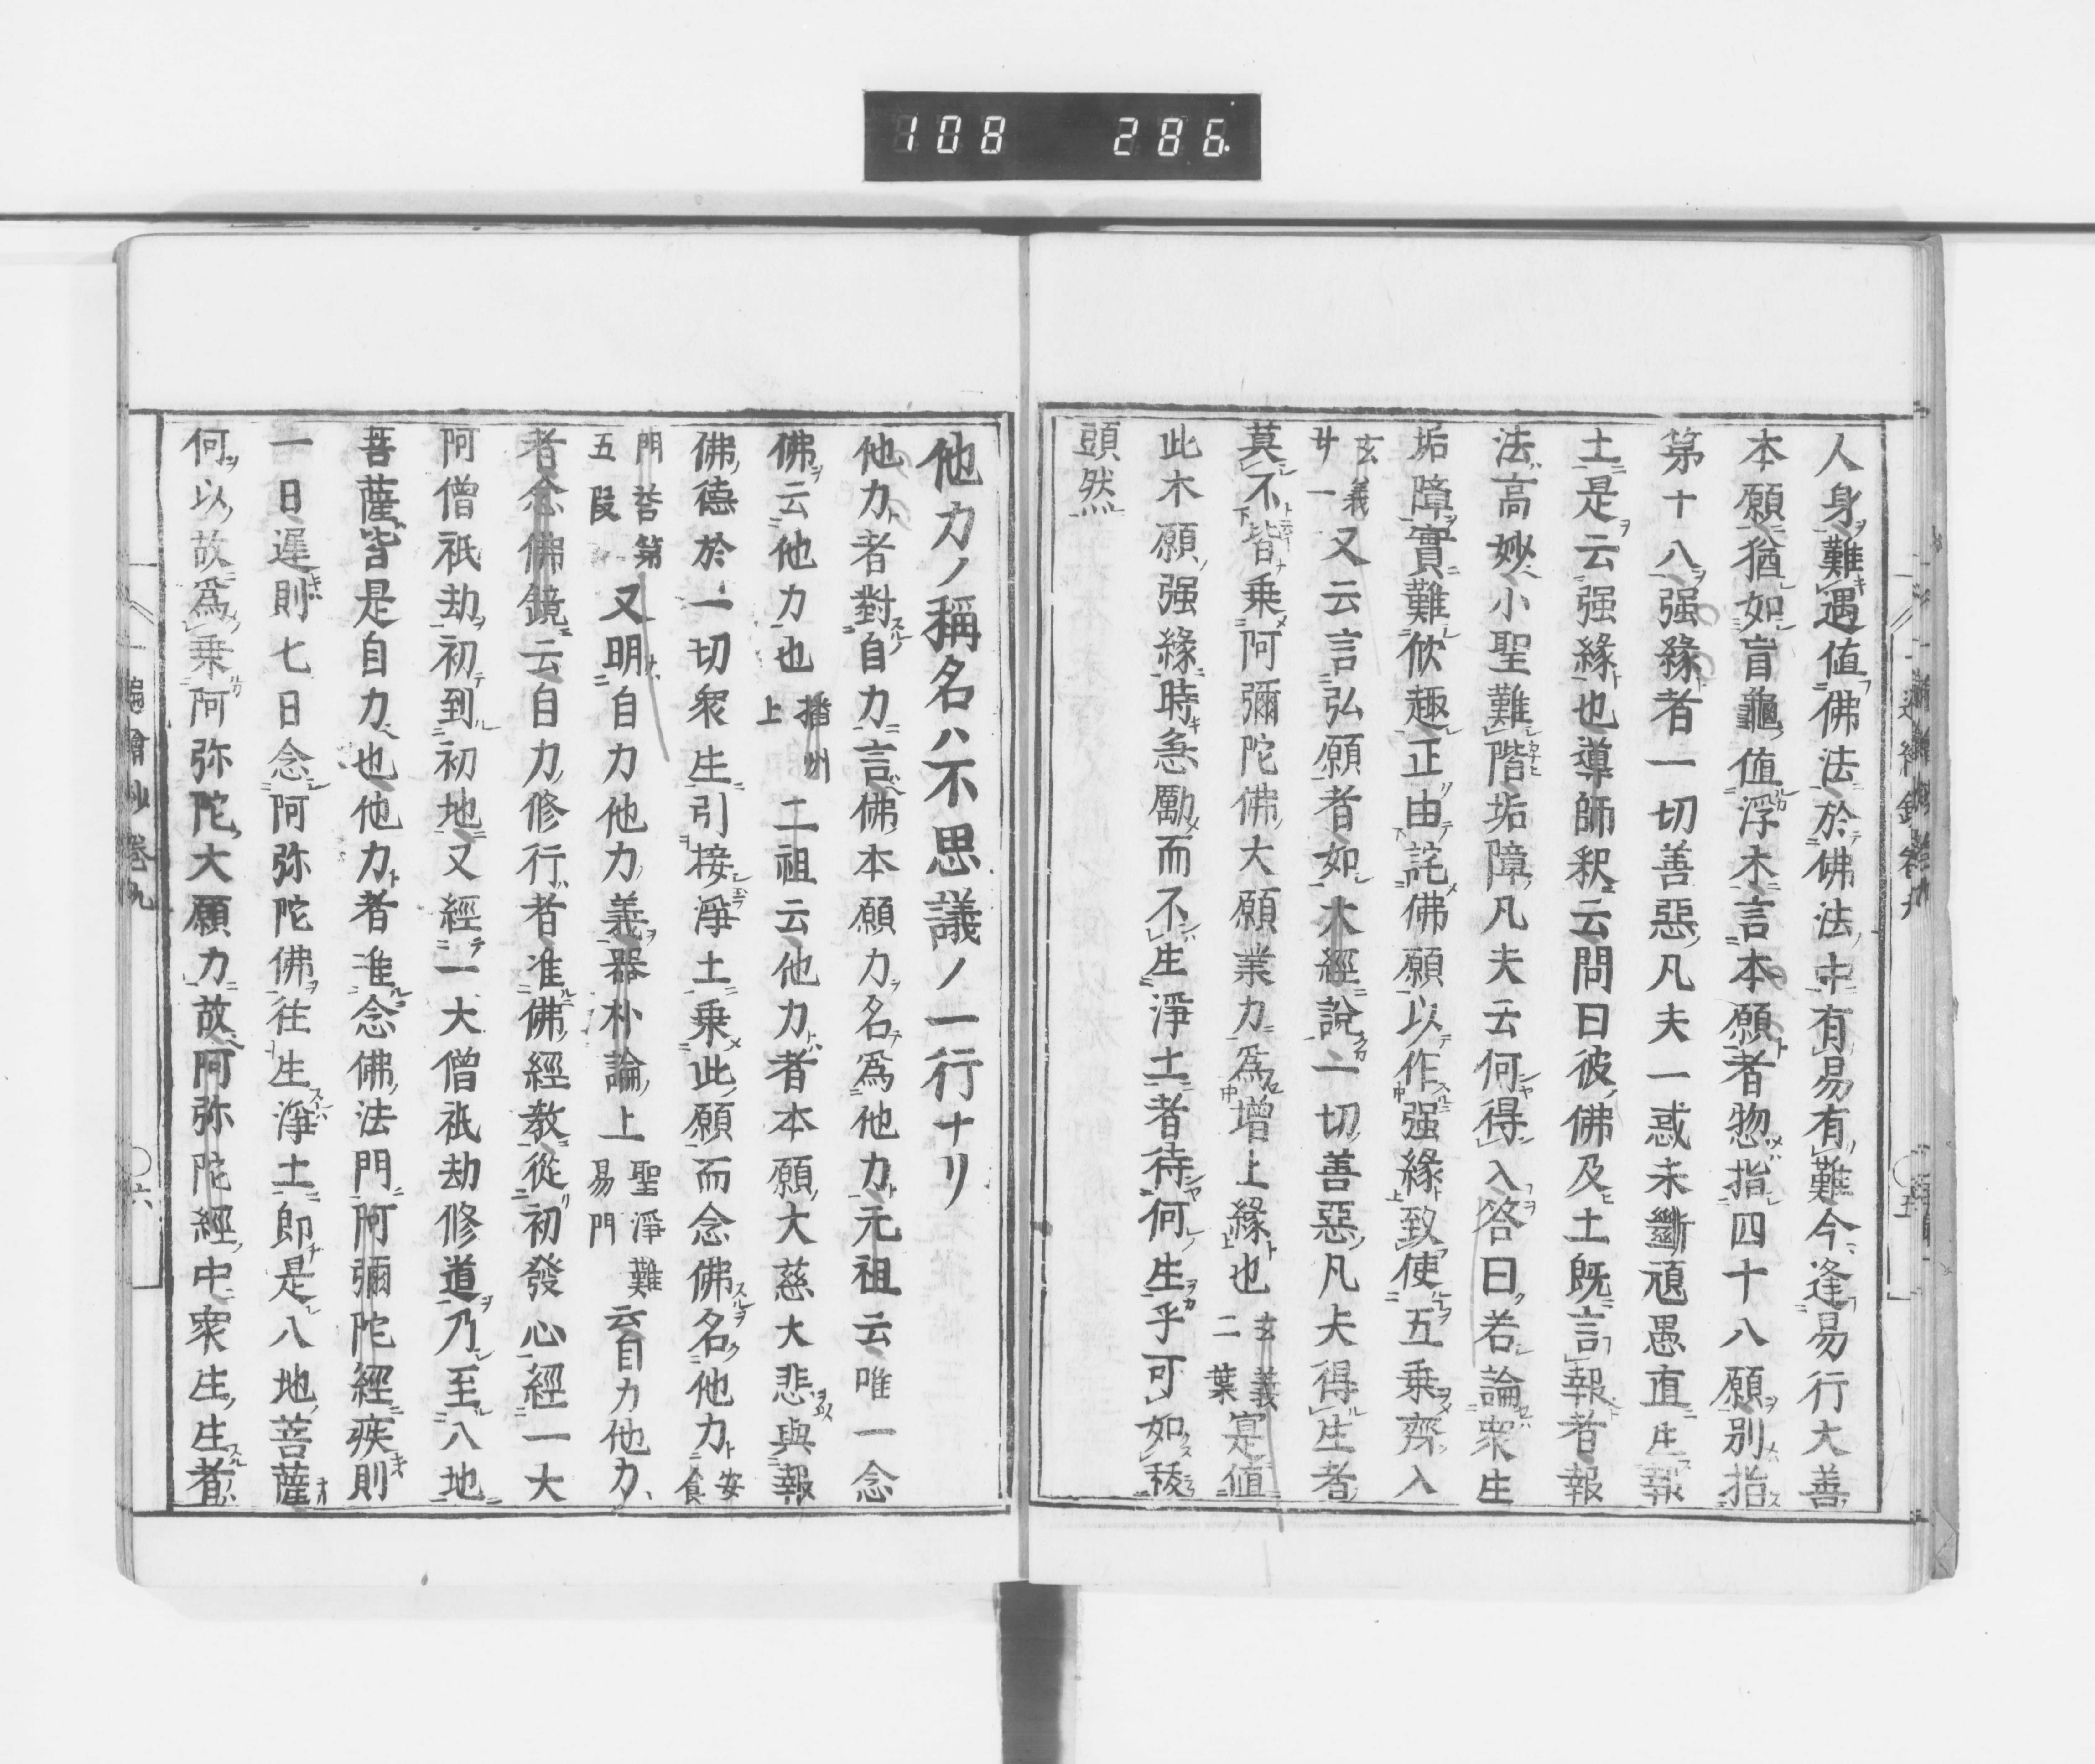 108 286
人身難遇値佛法於佛法中有易有難今逢易行大善
本願猶如盲龜値浮木言本願者惣指四十八願別指
第十八強緣者一切善惡凡夫一惑未斷頑愚直生報
土是云強緣也導師釈云問曰彼佛及土既言報者報
法高妙小聖難階垢障凡夫云何得入答曰若論衆生
垢障實難欣趣正由託佛願以作強緣致使五乗齊入
玄義
廿一
又云言弘願者如大經說一切善惡凡夫得生者
莫不皆乗阿彌陀佛大願業力爲增上緣也
玄義
二葉
寔値
此本願強緣時急勵而不生淨土者待何生乎可如
頭然
他力ノ稱名ハ不思議ノ一行ナリ
他力者對自力言佛本願力名爲他力元祖云唯一念
佛云他力也
播州
上
二祖云他力者本願大慈大悲與報
佛德於一切衆生引接淨土乗此願而念佛名他力
安
食
門答第
五段
又明自力他力義器朴論上
聖淨難
易門
云自力他力
者念佛鏡云自力修行者准佛經教從初發心經一大
阿僧祇劫初到初地又經一大僧祇劫修道乃至八地
菩薩皆是自力也他力者准念佛法門阿彌陀經疾則
一日遲則七日念阿弥陀佛往生淨土即是八地菩薩
何以故爲乗阿弥陀大願力故阿弥陀經中衆生生者
繪抄卷九
六